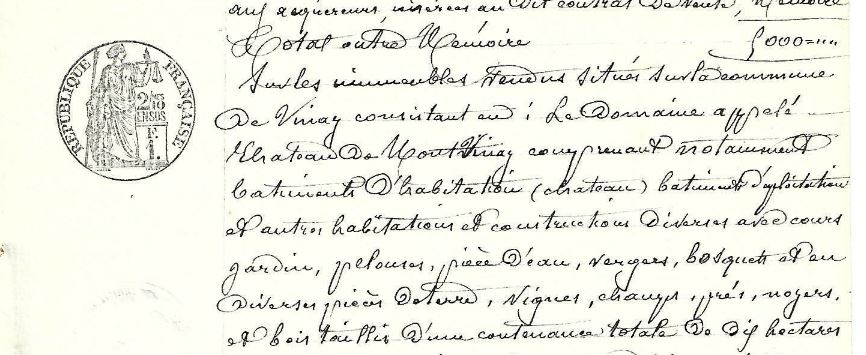 aux acquéreurs, insérées au dit contrat de vente, Mémoire
Total outre Mémoire 5000=""
Sur les immeubles vendus situés sur la commune
De Vinay consistant en : Le Domaine appelé
Chateau De MontVinay comprenant notamment
batiments D'habitation (chateau) batiments d'exploitation
et autres habitations et constructions Diverses avec cours
jardin, pelouses, pièce D'eau, vergers, bosquets et en
Diverses pièces de terre, vignes, champs, prés, noyers,
et bois taillis D'une contenance totale De dix hectares
RÉPUBLIQUE FRANÇAISE
2/10
EN SUS
F.
1.